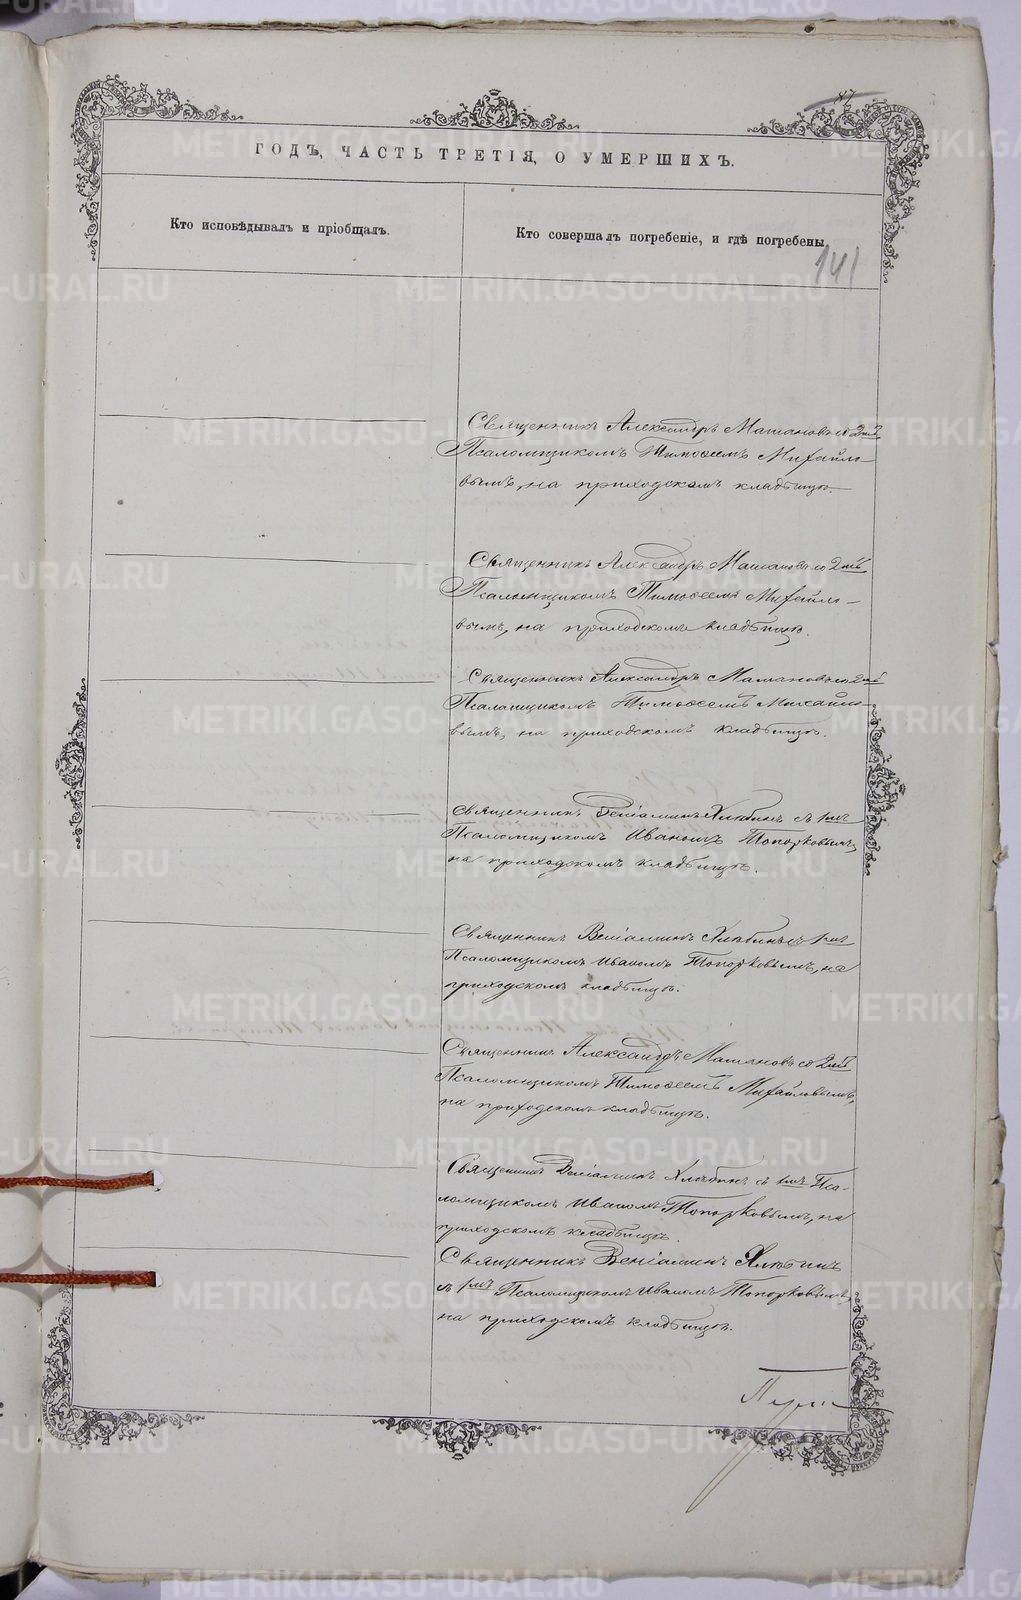 87
ГОДЪ, ЧАСТЬ ТРЕТІЯ, О УМЕРШИХЪ.
Кто исповѣдывалъ и пріобщалъ.
Кто совершалъ погребеніе, и гдѣ погребены.
141
Священникъ Александръ Матановъ со 2мъ
Псаломщикомъ Тимоѳеемъ Михайло-
вымъ, на приходскомъ кладбищѣ.
Священникъ Александръ Матановъ со 2мъ
Псаломщикомъ Тимоѳеемъ Михайло-
вымъ, на приходскомъ кладбищѣ.
Священникъ Александръ Матановъ со 2мъ
Псаломщикомъ Тимоѳеемъ Михайло-
вымъ, на приходскомъ кладбищѣ.
Священникъ Веніаминъ Хлѣбинъ съ 1мъ
Псаломщикомъ Иваномъ Топорковымъ,
на приходскомъ кладбищѣ.
Священникъ Веніаминъ Хлѣбинъ съ 1мъ
Псаломщикомъ Иваномъ Топорковымъ, на
приходскомъ кладбищѣ.
Священникъ Александръ Матановъ со 2мъ
Псаломщикомъ Тимоѳеемъ Михайловымъ,
на приходскомъ кладбищѣ.
Священникъ Веніаминъ Хлѣбинъ съ 1мъ Пса-
ломщикомъ Иваномъ Топорковымъ, на
приходскомъ кладбищѣ.
Священникъ Веніаминъ Хлѣбинъ
съ 1мъ Псаломщикомъ Иваномъ Топорковымъ,
на приходскомъ кладбищѣ.
METRIKI.GASO-URAL.RU